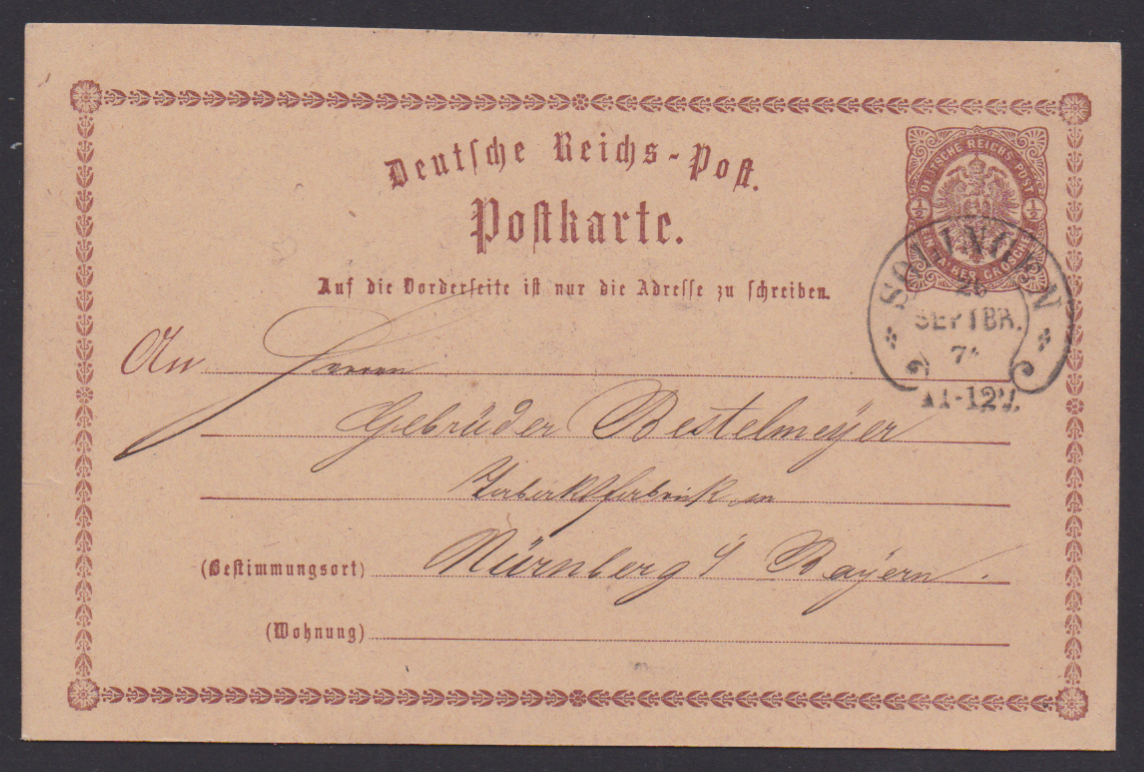 Deutsche Reichs-Post.
Postkarte.
Auf die Vorderseite ist nur die Adresse zu schreiben.
DEUTSCHE REICHS-POST
½ ½
EIN HALBER GROSCHEN
SOLINGEN
SEPTBR.
11-12V.
An Herren
Gebrüder Bestelmeyer
in
(Bestimmungsort) Nürnberg i/ Bayern.
(Wohnung)